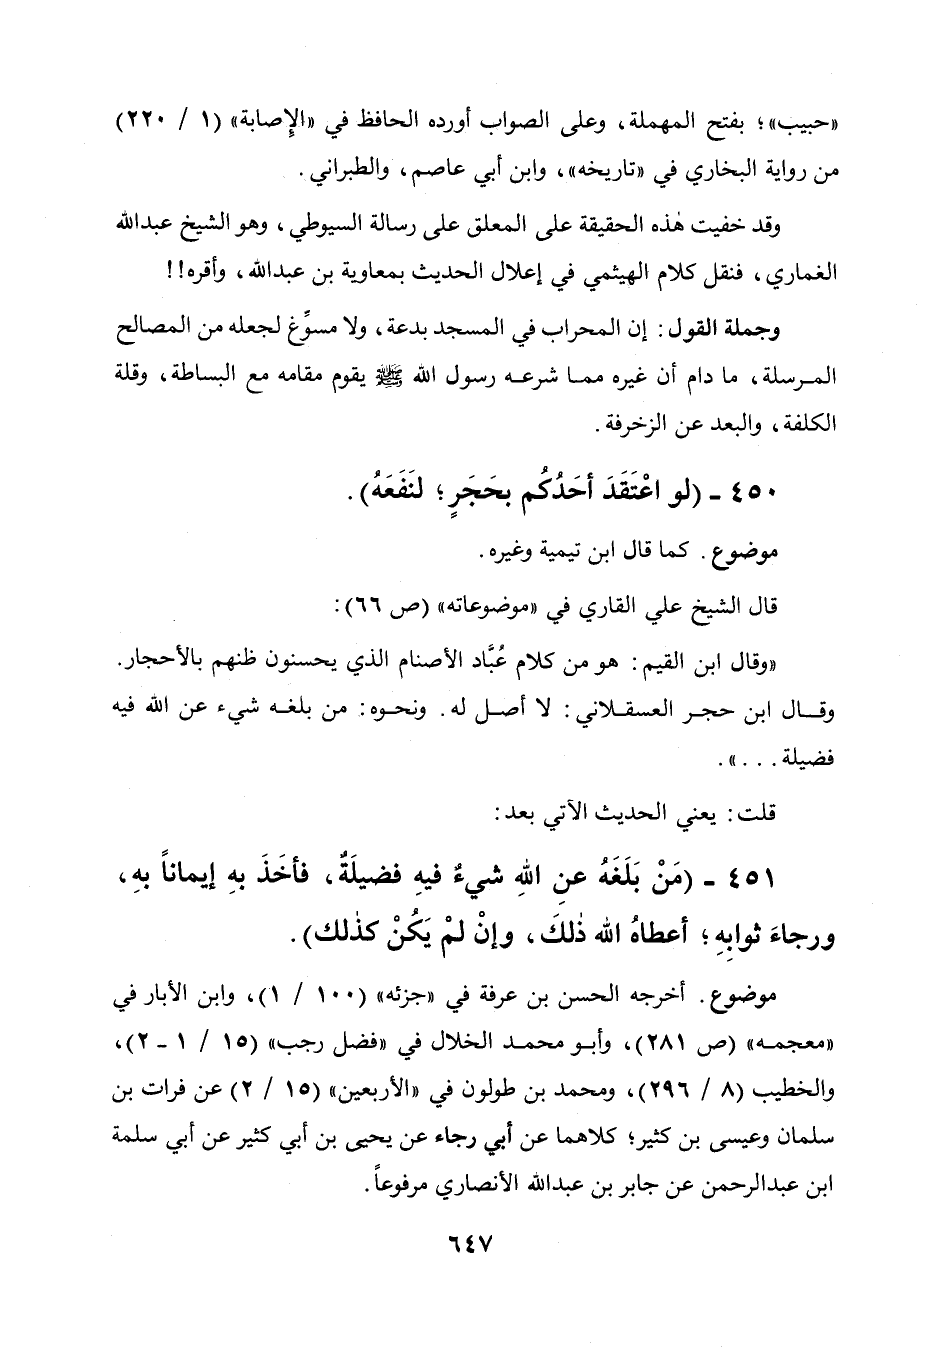 «حبيب»؛ بفتح المهملة، وعلى الصواب أورده الحافظ في «الإصابة» (١ / ٢٢٠)
من رواية البخاري في «تاريخه»، وابن أبي عاصم، والطبراني.
وقد خفيت هٰذه الحقيقة على المعلق على رسالة السيوطي، وهو الشيخ عبدالله
الغماري، فنقل كلام الهيثمي في إعلال الحديث بمعاوية بن عبدالله، وأقره!!
وجملة القول: إن المحراب في المسجد بدعة، ولا مسوِّغ لجعله من المصالح
المرسلة، ما دام أن غيره مما شرعه رسول الله ﷺ يقوم مقامه مع البساطة، وقلة
الكلفة، والبعد عن الزخرفة.
٤٥٠ - (لو اعْتَقَدَ أحَدُكُم بحَجَرٍ؛ لنَفَعَهُ).
موضوع. كما قال ابن تيمية وغيره.
قال الشيخ علي القاري في «موضوعاته» (ص ٦٦):
«وقال ابن القيم: هو من كلام عُبَّاد الأصنام الذي يحسنون ظنهم بالأحجار.
وقال ابن حجر العسقلاني: لا أصل له. ونحوه: من بلغه شيء عن الله فيه
فضيلة...».
قلت: يعني الحديث الآتي بعد:
٤٥١ - (مَنْ بَلَغَهُ عنِ اللهِ شيءٌ فيهِ فضيلَةٌ، فأخَذَ بهِ إيماناً بهِ،
ورجاءَ ثوابِهِ؛ أعطاهُ الله ذٰلكَ، وإنْ لمْ يَكُنْ كذٰلك).
موضوع. أخرجه الحسن بن عرفة في «جزئه» (١٠٠ / ١)، وابن الأبار في
«معجمه» (ص ٢٨١)، وأبو محمد الخلال في «فضل رجب» (١٥ / ١ - ٢)،
والخطيب (٨ / ٢٩٦)، ومحمد بن طولون في «الأربعين» (١٥ / ٢) عن فرات بن
سلمان وعيسى بن كثير؛ كلاهما عن أبي رجاء عن يحيى بن أبي كثير عن أبي سلمة
ابن عبدالرحمن عن جابر بن عبدالله الأنصاري مرفوعاً.
٦٤٧